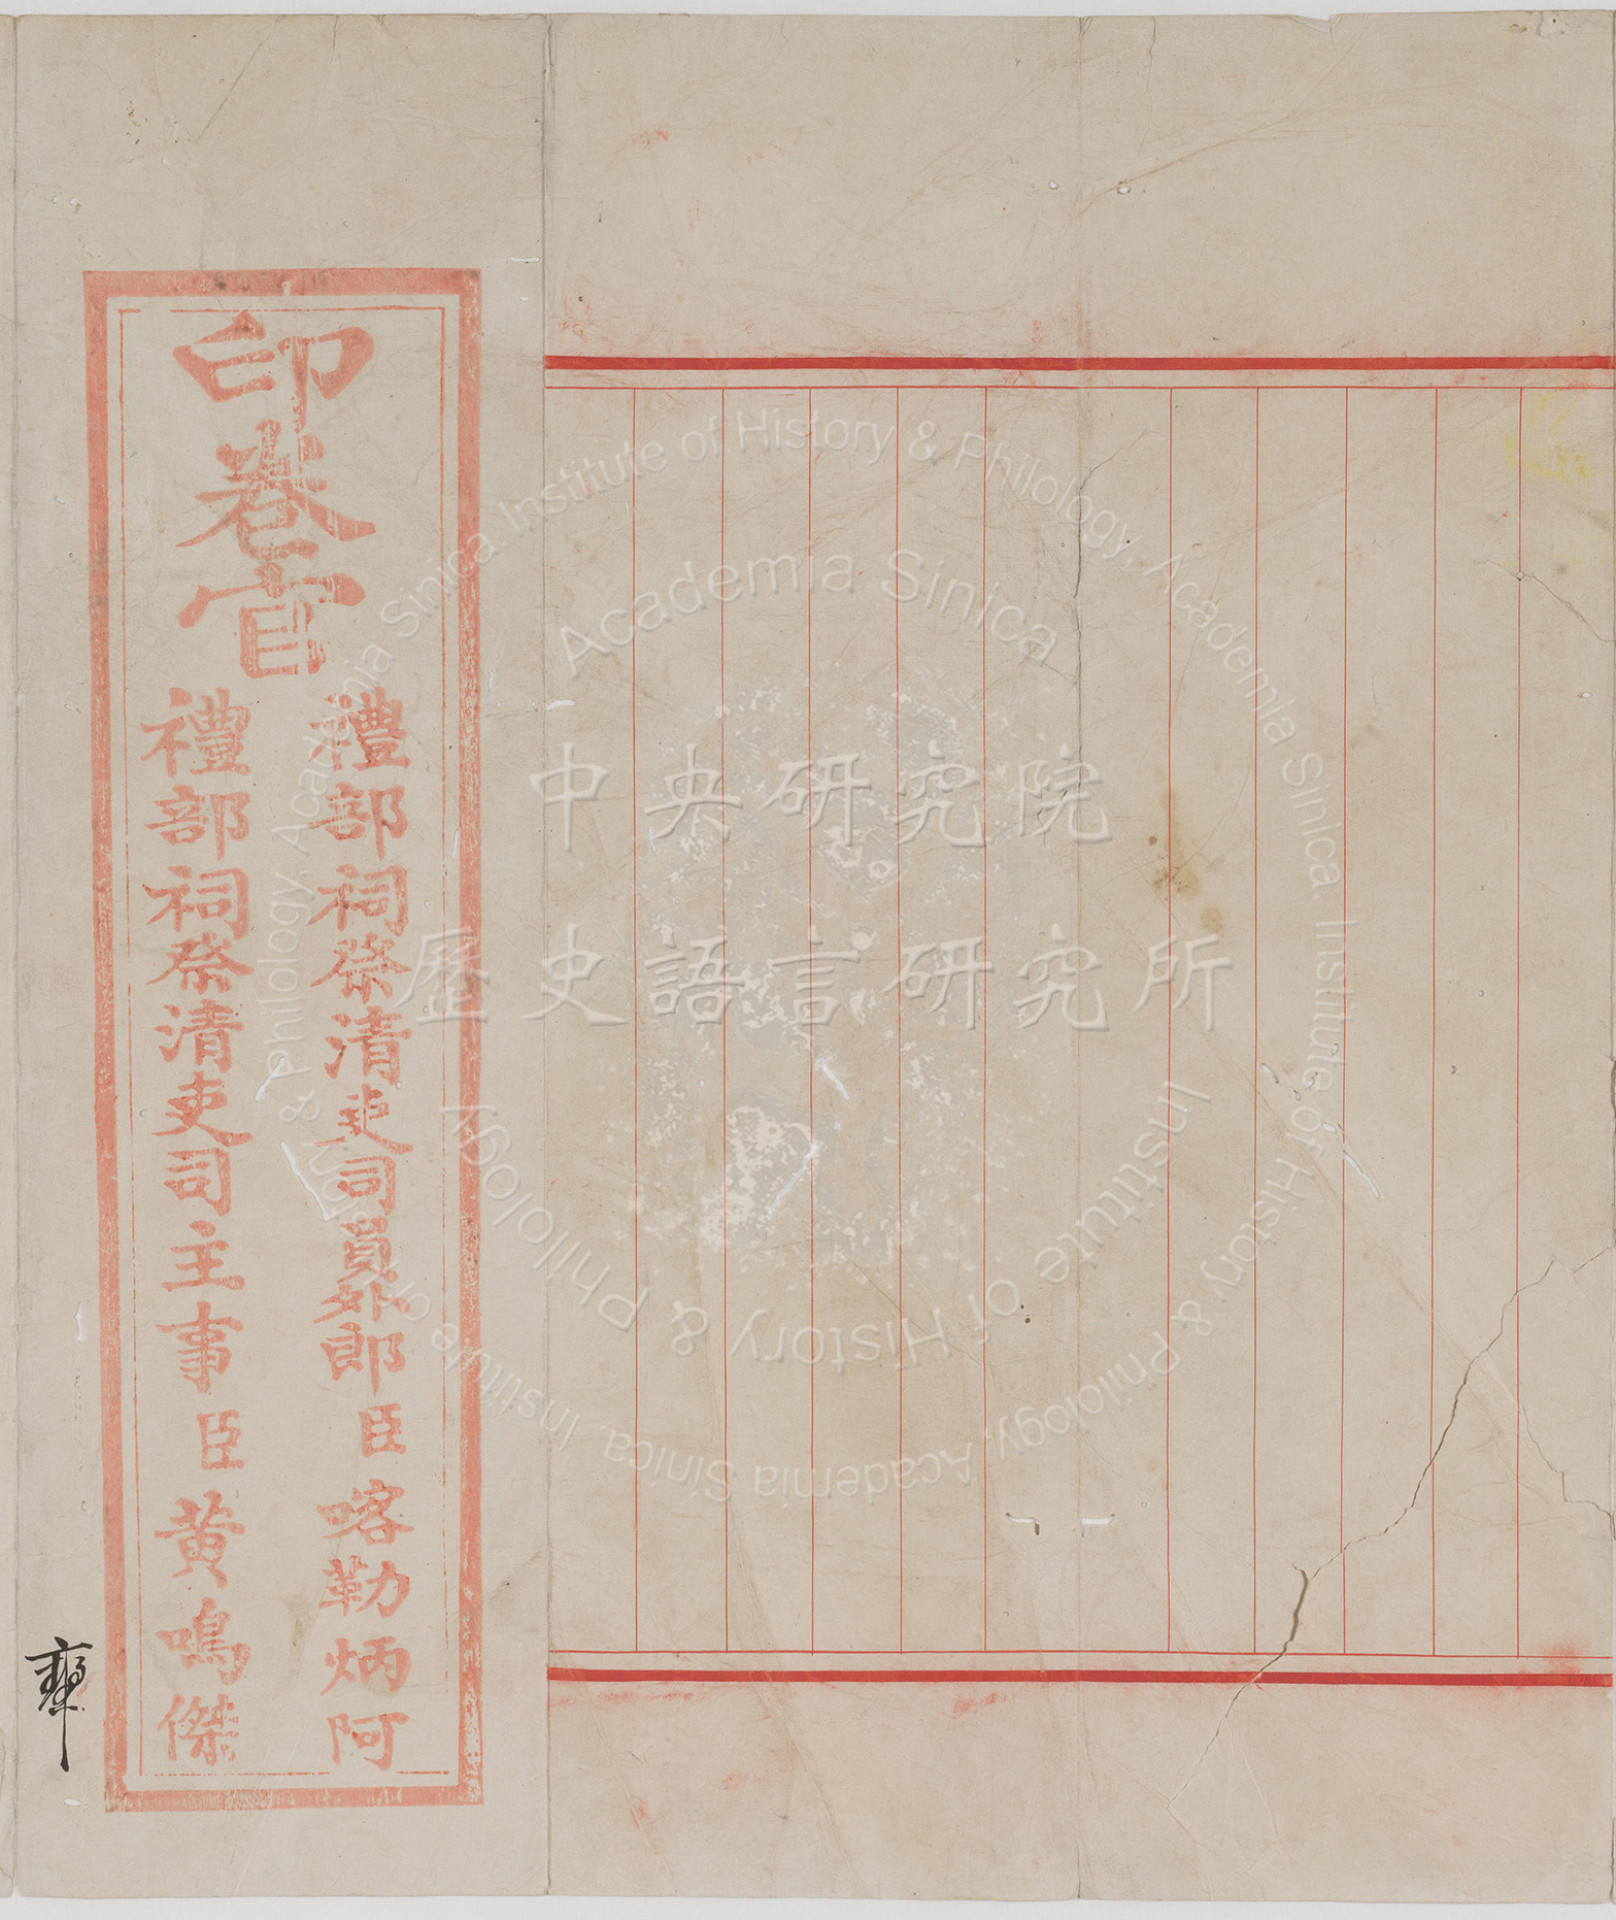 印卷官
禮部祠祭清吏司員外郎臣喀勒炳阿
禮部祠祭清吏司主事臣黃鳴傑
中央研究院
歷史語言研究所
Academia Sinica
Institute of History & Philology
Academia Sinica Institute of History & Philology, Academia Sinica. Institute of History & Philology, Academia Sinica, Institute of History & Philology,